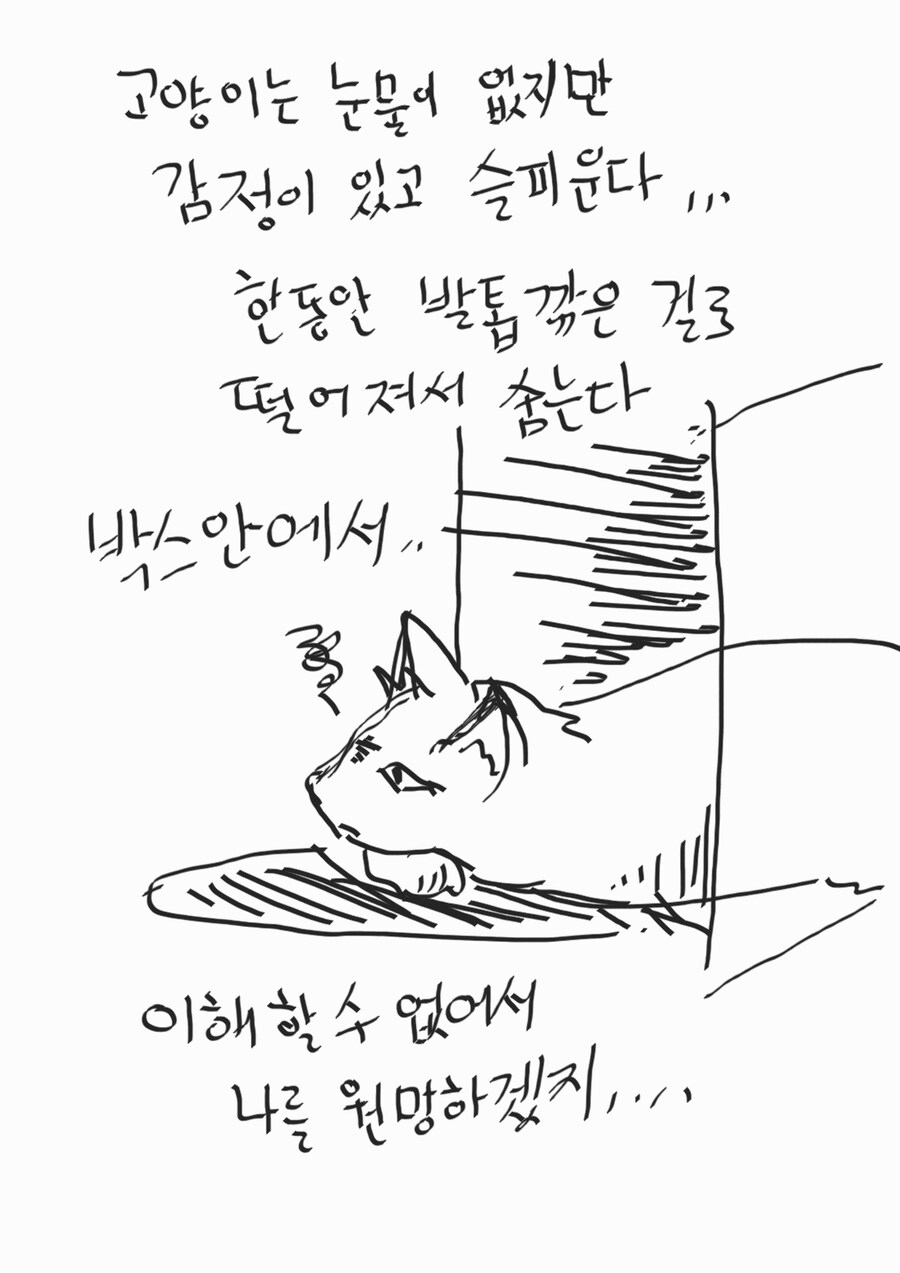 고양이는 눈물이 없지만
감정이 있고 슬피운다...
한동안 발톱 깎은 걸로
떨어져서 숨는다
박스안에서...
이해할 수 없어서
나를 원망하겠지....